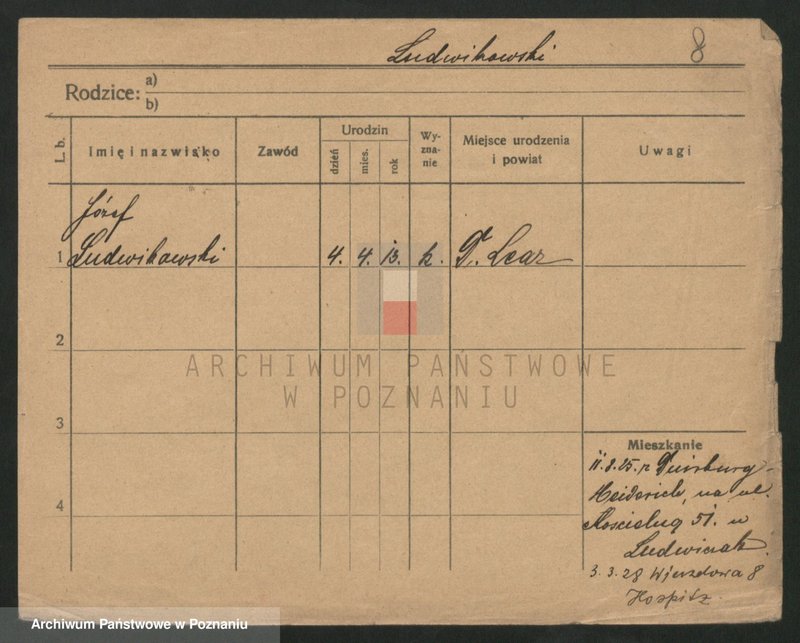 Ludwikowski 8
Rodzice: a)
b)
L. b. Imię i nazwisko Zawód Urodzin dzień mies. rok Wy-zna-nie Miejsce urodzenia i powiat Uwagi
Józef
1 Ludwikowski 4. 4. 13. k.
2
ARCHIWUM PAŃSTWOWE
W POZNANIU
3
Mieszkanie
Duisburg-
4 na ul.
51. u
Ludwiczak
3.3.28 Wjazdowa 8
Hospitz.
Archiwum Państwowe w Poznaniu